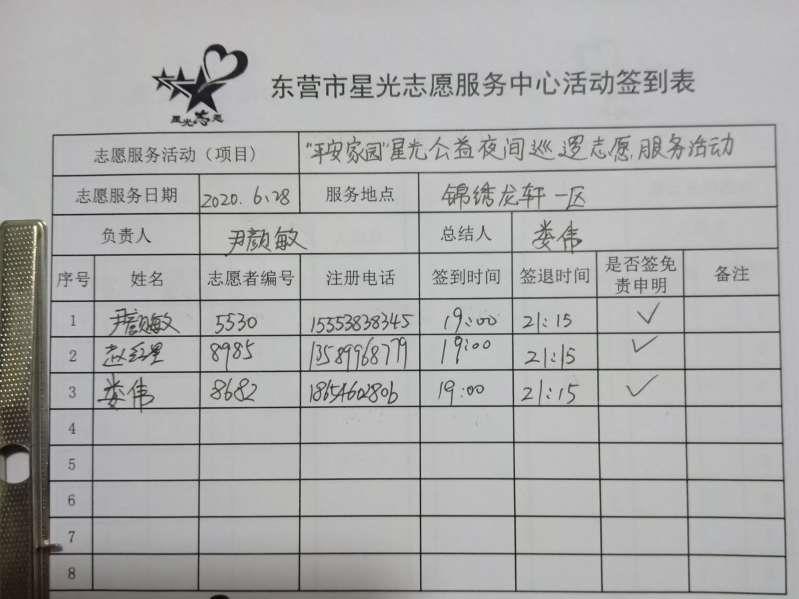 星光志愿
东营市星光志愿服务中心活动签到表
志愿服务活动（项目） "平安家园"星光公益夜间巡逻志愿服务活动
志愿服务日期 2020.6.28 服务地点 锦绣龙轩一区
负责人 尹颜敏 总结人 娄伟
序号 姓名 志愿者编号 注册电话 签到时间 签退时间 是否签免责申明 备注
1 尹颜敏 5530 15353838345 19:00 21:15 ✓
2 赵红星 8985 13589968779 19:00 21:15 ✓
3 娄伟 8682 18654602806 19:00 21:15 ✓
4
5
6
7
8